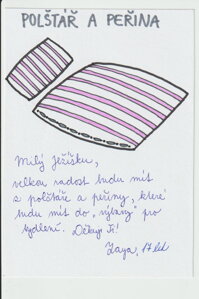 POLŠTÁŘ A PEŘINA
Milý Ježíšku,
velkou radost budu mít
z polštáře a peřiny, které
budu mít do „výbavy“ pro
bydlení. Děkuji Ti!
17 let